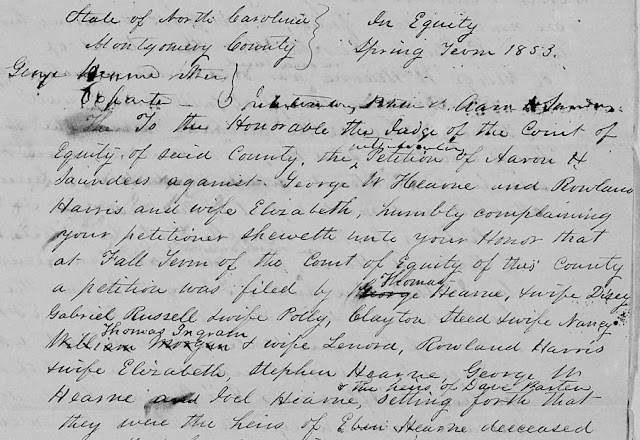 State of North Carolina } In Equity
Montgomery County } Spring Term 1853.
George Hearne & others }
Exparte } Petition Aaron H Saunders
The To the Honorable the Judge of the Court of
Equity of said County, the Petition of Aaron H
Saunders against George W Hearne and Rowland
Harris and wife Elizabeth, humbly complaining
your petitioner sheweth unto your Honor that
at Fall Term of the Court of Equity of this County
Thomas
a petition was filed by George Hearne, & wife Dicey
Gabriel Russell & wife Polly, Clayton Steed & wife Nancy
Thomas Ingram
William Morgan & wife Lenord, Rowland Harris
& wife Elizabeth, Stephen Hearne, George W
& the heirs of Dave
Hearne and Joel Hearne setting forth that
they were the heirs of Eben Hearne deceesed